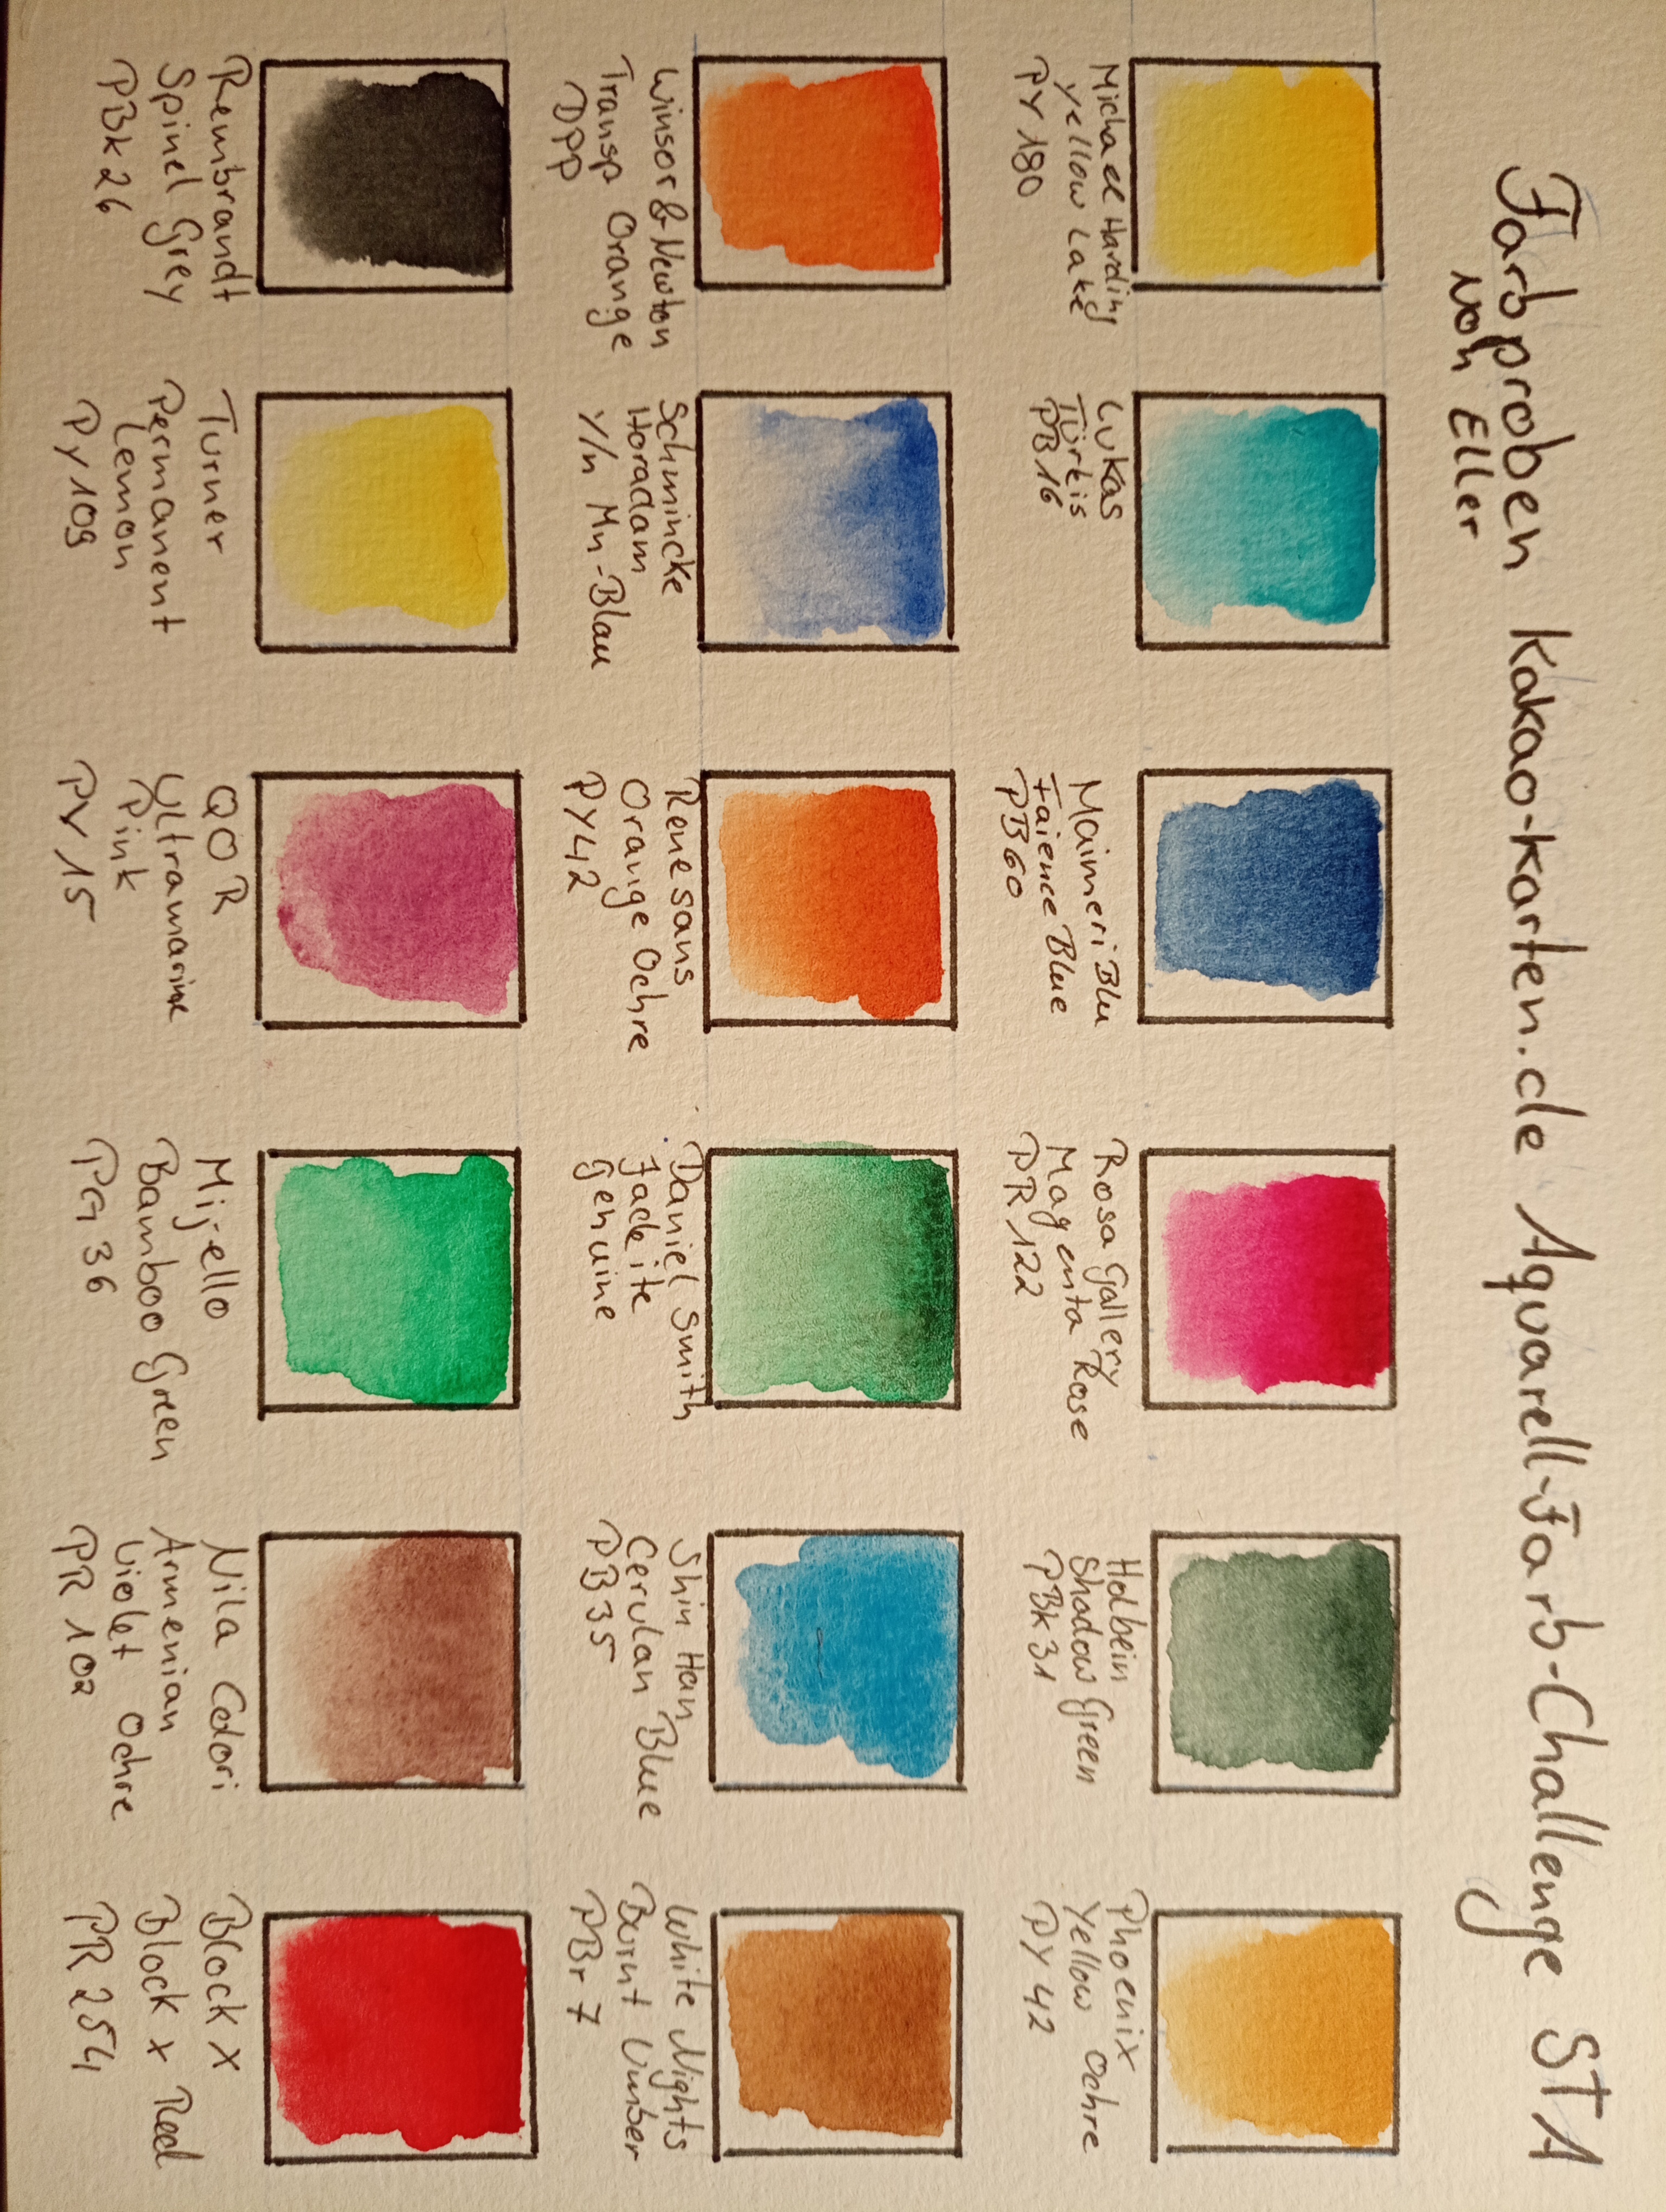 Farbproben Kakao-karten.de Aquarell-Farb-Challenge ST1
von Eller
Michael Harding
Yellow Lake
PY 180
Lukas
Türkis
PB16
Maimeri Blu
Faience Blue
PB60
Rosa Gallery
Magenta Rose
PR122
Holbein
Shadow Green
PBk31
Phoenix
Yellow Ochre
PY 42
Winsor & Newton
Transp Orange
DPP
Schmincke
Horadam
Y/n Mn-Blau
Renesans
Orange Ochre
PY42
Daniel Smith
Jadeite
genuine
Shin Han
Cerulan Blue
PB35
White Nights
Burnt Umber
PBr 7
Rembrandt
Spinel Grey
PBk 26
Turner
Permanent
Lemon
Py 109
QOR
Ultramarine
Pink
PV 15
Mijello
Bamboo Green
PG 36
Nila Colori
Armenian
Violet Ochre
PR 102
Block x
Block x Red
PR 254